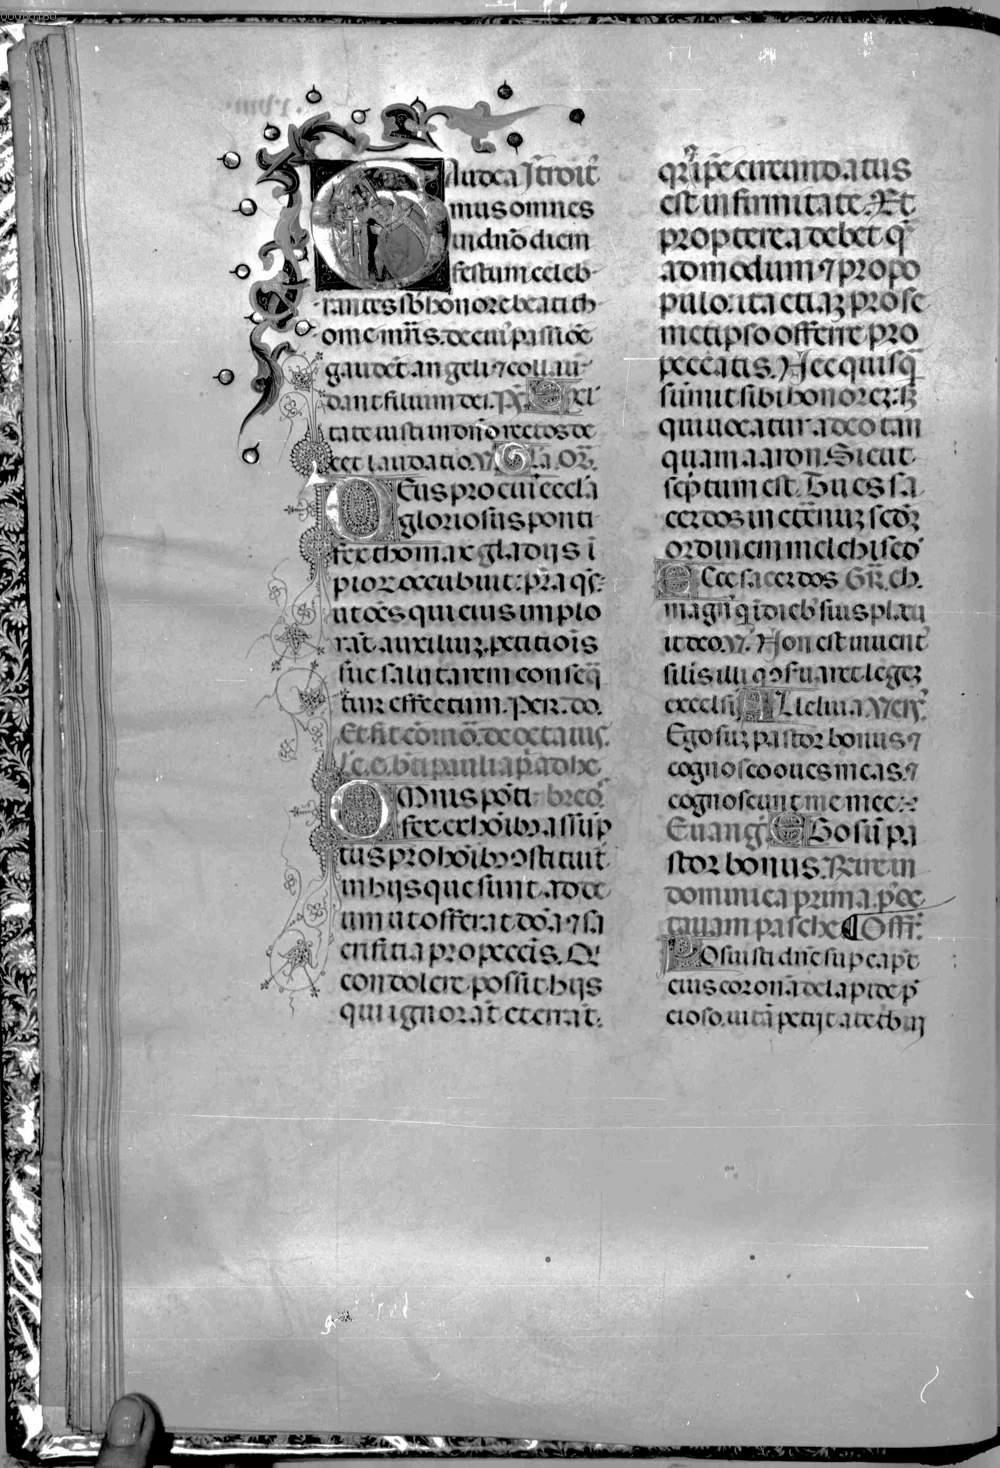 Gaudea Itroit᷑
mus omnes
in dn̄o diem
festum celeb
rantes sb̄ honore beati th
ome mr̄is. de cui᷒ passiōe
gaudēt angeli ⁊ collau
dant filium dei. p̄s. Exl
tate iusti in dn̄o rectos de
cet laudatio. V. Gl̄a. Or̄.
Deus pro cui᷒ eccl̄a
gloriosus ponti
fex thomax gladijs ī
pioꝝ occubuit: pr̄a qs̄:
ut oēs qui eius implo
rāt auxiliuꝫ. petitiōis
sue salutarem conseq̄
tur effectum. Per. do.
Et fit cōmō. de octauis.
Lc̄. e. bt̄i pauli ap̄. ad he
Omnis pōti breoꝝ.
fex ex hōibꝫ assūp
tus pro hōibꝫ ꝯstituit᷑
in hijs que sunt ad de
um ut offerat dōa ⁊ sa
crificia pro peccīs. Q᷑
condolere possit hijs
qui ignorāt et errāt.
qm̄ ⁊ ip̄e circumdatus
est infirmitate. Et
propterea debet q̄
admodum ⁊ pro po
pulo. ita etiaꝫ pro se
metipso offerre pro
peccatis. Nec quisq̄
sumit sibi honorez: sꝫ
qui uocatur a deo tan
quam aaron. Sicut
sc̄ptum est. Tu es sa
cerdos in eternuꝫ scd̄ꝫ
ordinem melchised᷒
Ecce sacerdos Gr̄. ch.
magn᷒ q̄ ī dieb᷒ suis placu
it deo. V. Non est inuent᷒
sil̄is illi q ꝯs̓uaret legeꝫ
excelsi Alleluia Vers᷒.
Ego suꝫ pastor bonus ⁊
cognosco oues meas. ⁊
cognoscunt me mee:
Euang᷒. Ego sū pa
stor bonus. Rere in
dominica prima p᷒ oc
tauam pasche ¶ Offr̄.
Posuisti dn̄e sup cap̄t
eius coronā de lapide p̄
cioso. uitā petijt a te t̄buj